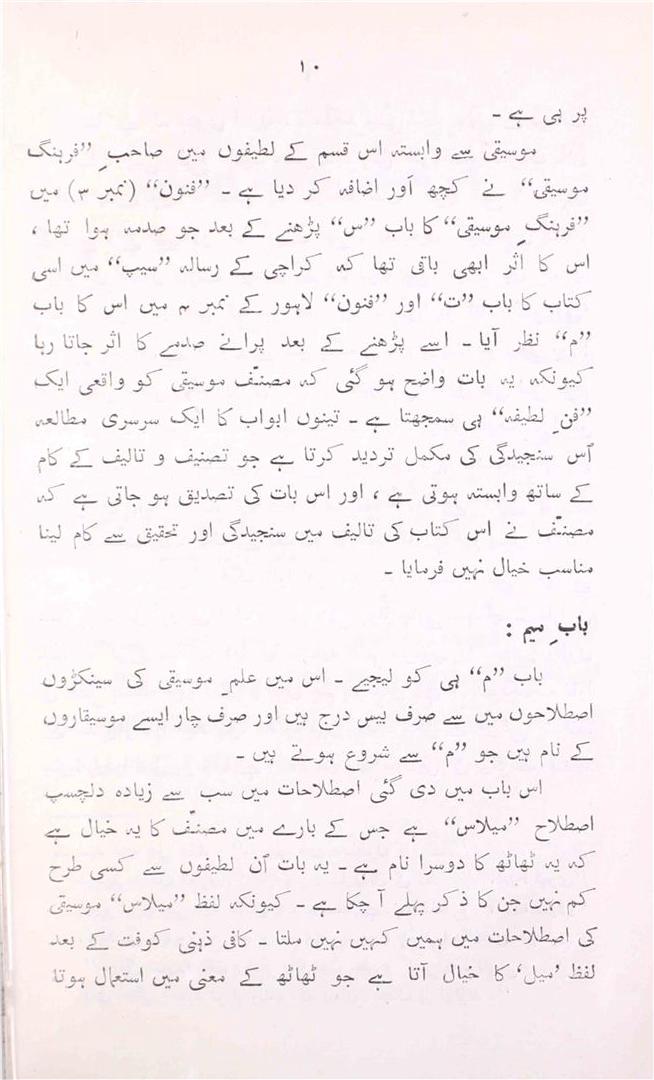 ۱۰
پر ہی ہے ۔
موسیقی سے وابستہ اس قسم کے لطیفوں میں صاحبِ ”فرہنگ
موسیقی“ نے کچھ اَور اضافہ کر دیا ہے ۔ ”فنون“ (نمبر ۳) میں
”فرہنگِ موسیقی“ کا باب ”س“ پڑھنے کے بعد جو صدمہ ہوا تھا ،
اس کا اثر ابھی باقی تھا کہ کراچی کے رسالہ ”سیپ“ میں اسی
کتاب کا باب ”ت“ اور ”فنون“ لاہور کے نمبر ۴ میں اس کا باب
”م“ نظر آیا ۔ اسے پڑھنے کے بعد پرانے صدمے کا اثر جاتا رہا
کیونکہ یہ بات واضح ہو گئی کہ مصنّف موسیقی کو واقعی ایک
”فنِ لطیفہ“ ہی سمجھتا ہے ۔ تینوں ابواب کا ایک سرسری مطالعہ
اُس سنجیدگی کی مکمل تردید کرتا ہے جو تصنیف و تالیف کے کام
کے ساتھ وابستہ ہوتی ہے ، اور اس بات کی تصدیق ہو جاتی ہے کہ
مصنّف نے اس کتاب کی تالیف میں سنجیدگی اور تحقیق سے کام لینا
مناسب خیال نہیں فرمایا ۔
بابِ میم :
باب ”م“ ہی کو لیجیے ۔ اس میں علمِ موسیقی کی سینکڑوں
اصطلاحوں میں سے صرف بیس درج ہیں اور صرف چار ایسے موسیقاروں
کے نام ہیں جو ”م“ سے شروع ہوتے ہیں ۔
اس باب میں دی گئی اصطلاحات میں سب سے زیادہ دلچسپ
اصطلاح ”میلاس“ ہے جس کے بارے میں مصنّف کا یہ خیال ہے
کہ یہ ٹھاٹھ کا دوسرا نام ہے ۔ یہ بات اُن لطیفوں سے کسی طرح
کم نہیں جن کا ذکر پہلے آ چکا ہے ۔ کیونکہ لفظ ”میلاس“ موسیقی
کی اصطلاحات میں ہمیں کہیں نہیں ملتا ۔ کافی ذہنی کوفت کے بعد
لفظ ’میل‘ کا خیال آتا ہے جو ٹھاٹھ کے معنی میں استعمال ہوتا